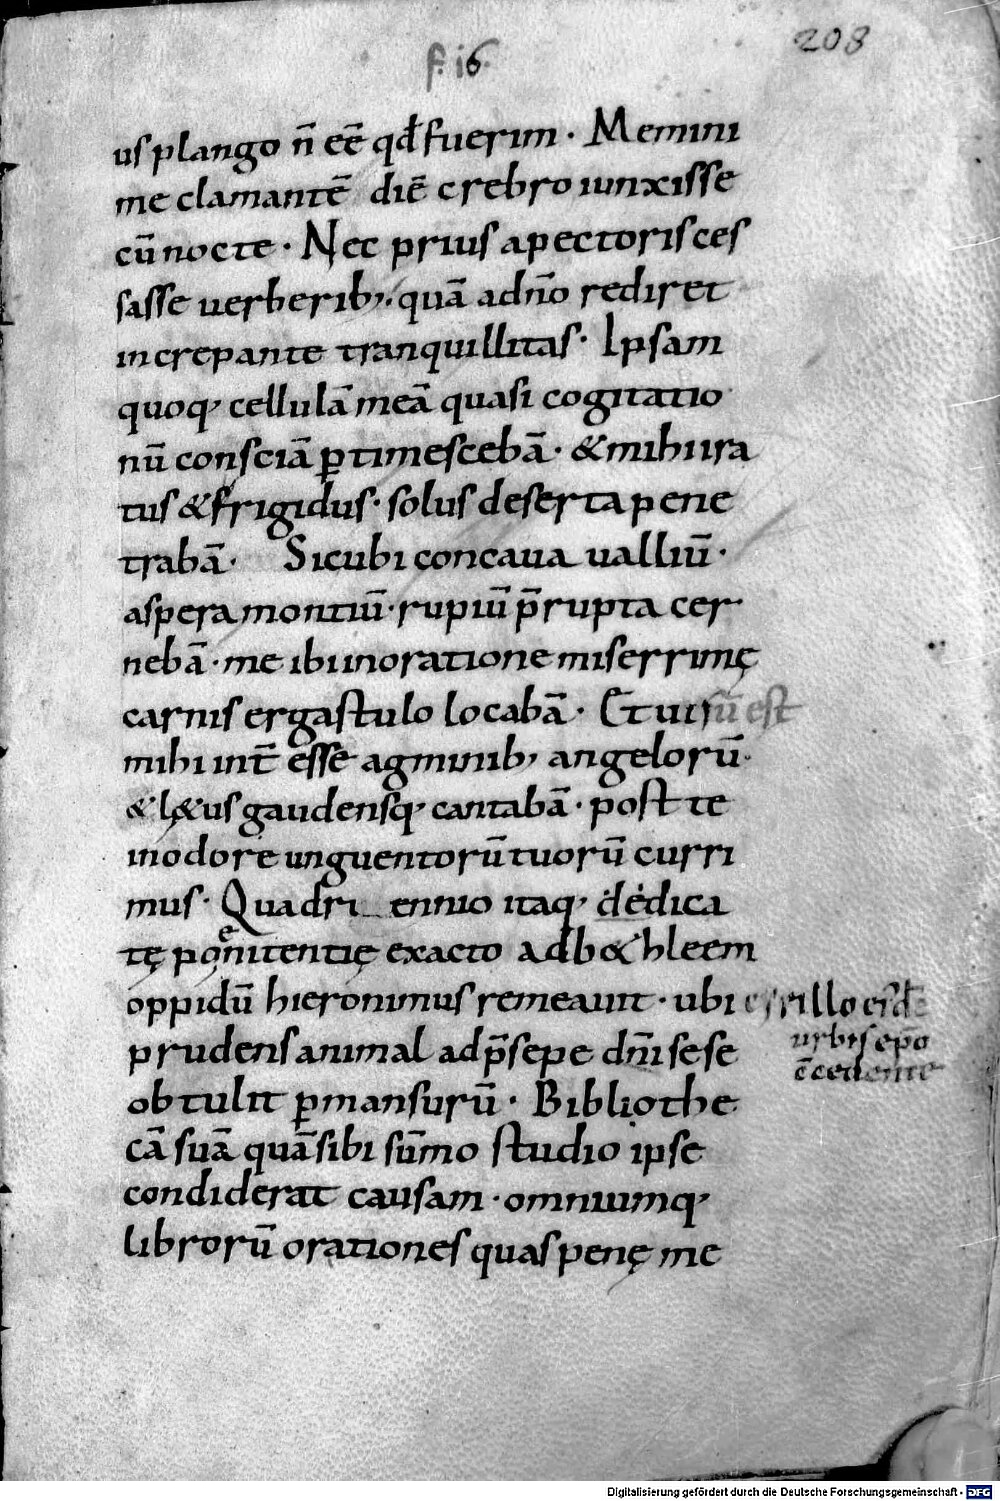 208
f. 16.
us plango n̄ eē qd̄ fuerim · Memini
me clamantē diē crebro iunxisse
cū nocte · Nec prius a pectoris ces
sasse uerberib; · quā ad dn̄o rediret
increpante tranquillitas · Ipsam
quoq; cellulā meā quasi cogitatio
nū consciā ꝑtimescebā · & mihi ira
tus & frigidus · solus deserta pene
trabā · Sicubi concaua ualliū ·
aspera montiū · rupiū p̄rupta cer
nebā · me ibi in oratione miserrimę
carnis ergastulo locabā · Et uisū est
mihi int̄ esse agminib; angelorū ·
& l&us gaudensq; cantabā · post te
in odore unguentorū tuorū curri
mus · Quadri ennio itaq; dedica
tę poenitentię exacto ad b&hleem
oppidū hieronimus remeauit · ubi cyrillo eisdē
urbis ep̄o
c̄cedente
prudens animal ad p̄sepe dn̄i sese
obtulit ꝑmansurū · Bibliothe
cā suā quā sibi sūmo studio ipse
condiderat causam · omniumq;
librorū orationes quas penę me
Digitalisierung gefördert durch die Deutsche Forschungsgemeinschaft - DFG